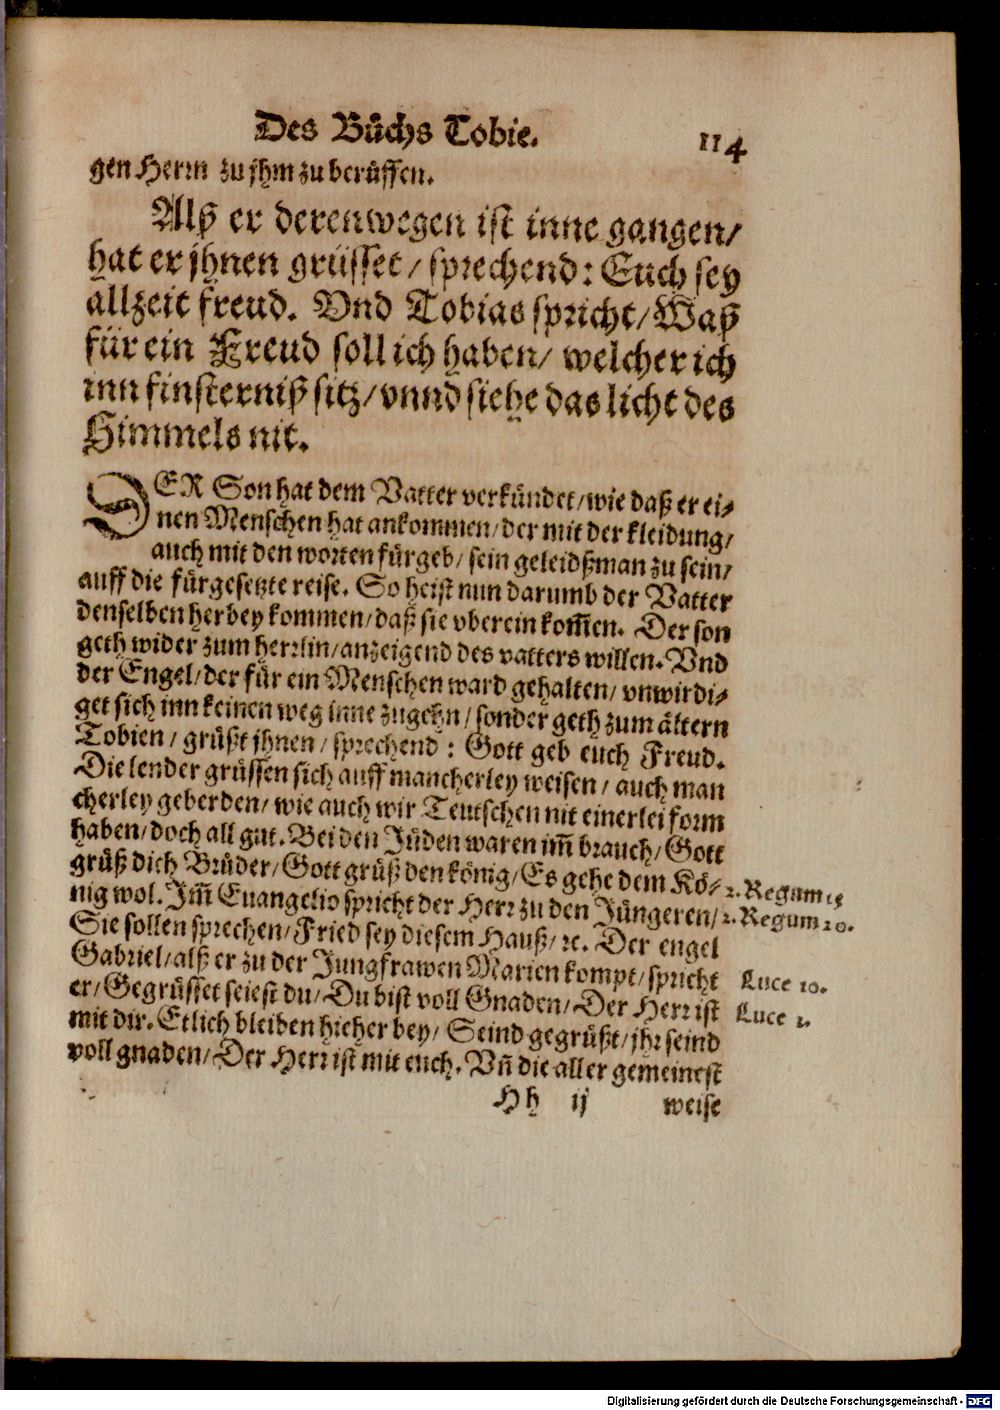 Des Bůchs Tobie. 114
gen Herrn zu jhm zu berůffen.
Alß er derenwegen ist inne gangen/
hat er jhnen grüsset/ sprechend: Euch sey
allzeit freud. Vnd Tobias spricht/ Waß
für ein Freud soll ich haben/ welcher ich
inn finsterniß sitz/ vnnd siehe das licht des
Himmels nit.
DER Son hat dem Vatter verkündet/ wie daß er ei-
nen Menschen hat ankommen/ der mit der kleidung/
auch mit den worten fürgeb/ sein geleidßman zu sein/
auff die fürgesetzte reise. So heist nun darumb der Vatter
denselben herbey kommen/ daß sie vberein kom̃en. Der son
geth wider zum herrlin/ anzeigend des vatters willen. Vnd
der Engel/ der für ein Menschen ward gehalten/ vnwirdi-
get sich inn keinen weg inne zugehn/ sonder geth zum ältern
Tobien/ grüßt jhnen/ sprechend: Gott geb euch Freud.
Die lender grüssen sich auff mancherley weisen/ auch man
cherley geberden/ wie auch wir Teutschen nit einerlei form
haben/ doch all gut. Bei den Jüden waren im̃ brauch/ Gott
grüß dich Brůder/ Gott grüß den könig/ Es gehe dem Kö-
2. Regum 15
nig wol. Im̃ Euangelio spricht der Herr zu den Jüngeren/
2. Regum 20.
Sie sollen sprechen/ Fried sey diesem Hauß/ ꝛc. Der engel
Gabriel/ alß er zu der Jungfrawen Marien kompt/ spricht
Luce 10.
er/ Gegrüsset seiest du/ Du bist voll Gnaden/ Der Herr ist
Luce 1.
mit dir. Etlich bleiben hieher bey/ Seind gegrüßt/ jhr seind
voll gnaden/ Der Herr ist mit euch. Vñ die aller gemeinest
Hh ij weise
Digitalisierung gefördert durch die Deutsche Forschungsgemeinschaft - DFG